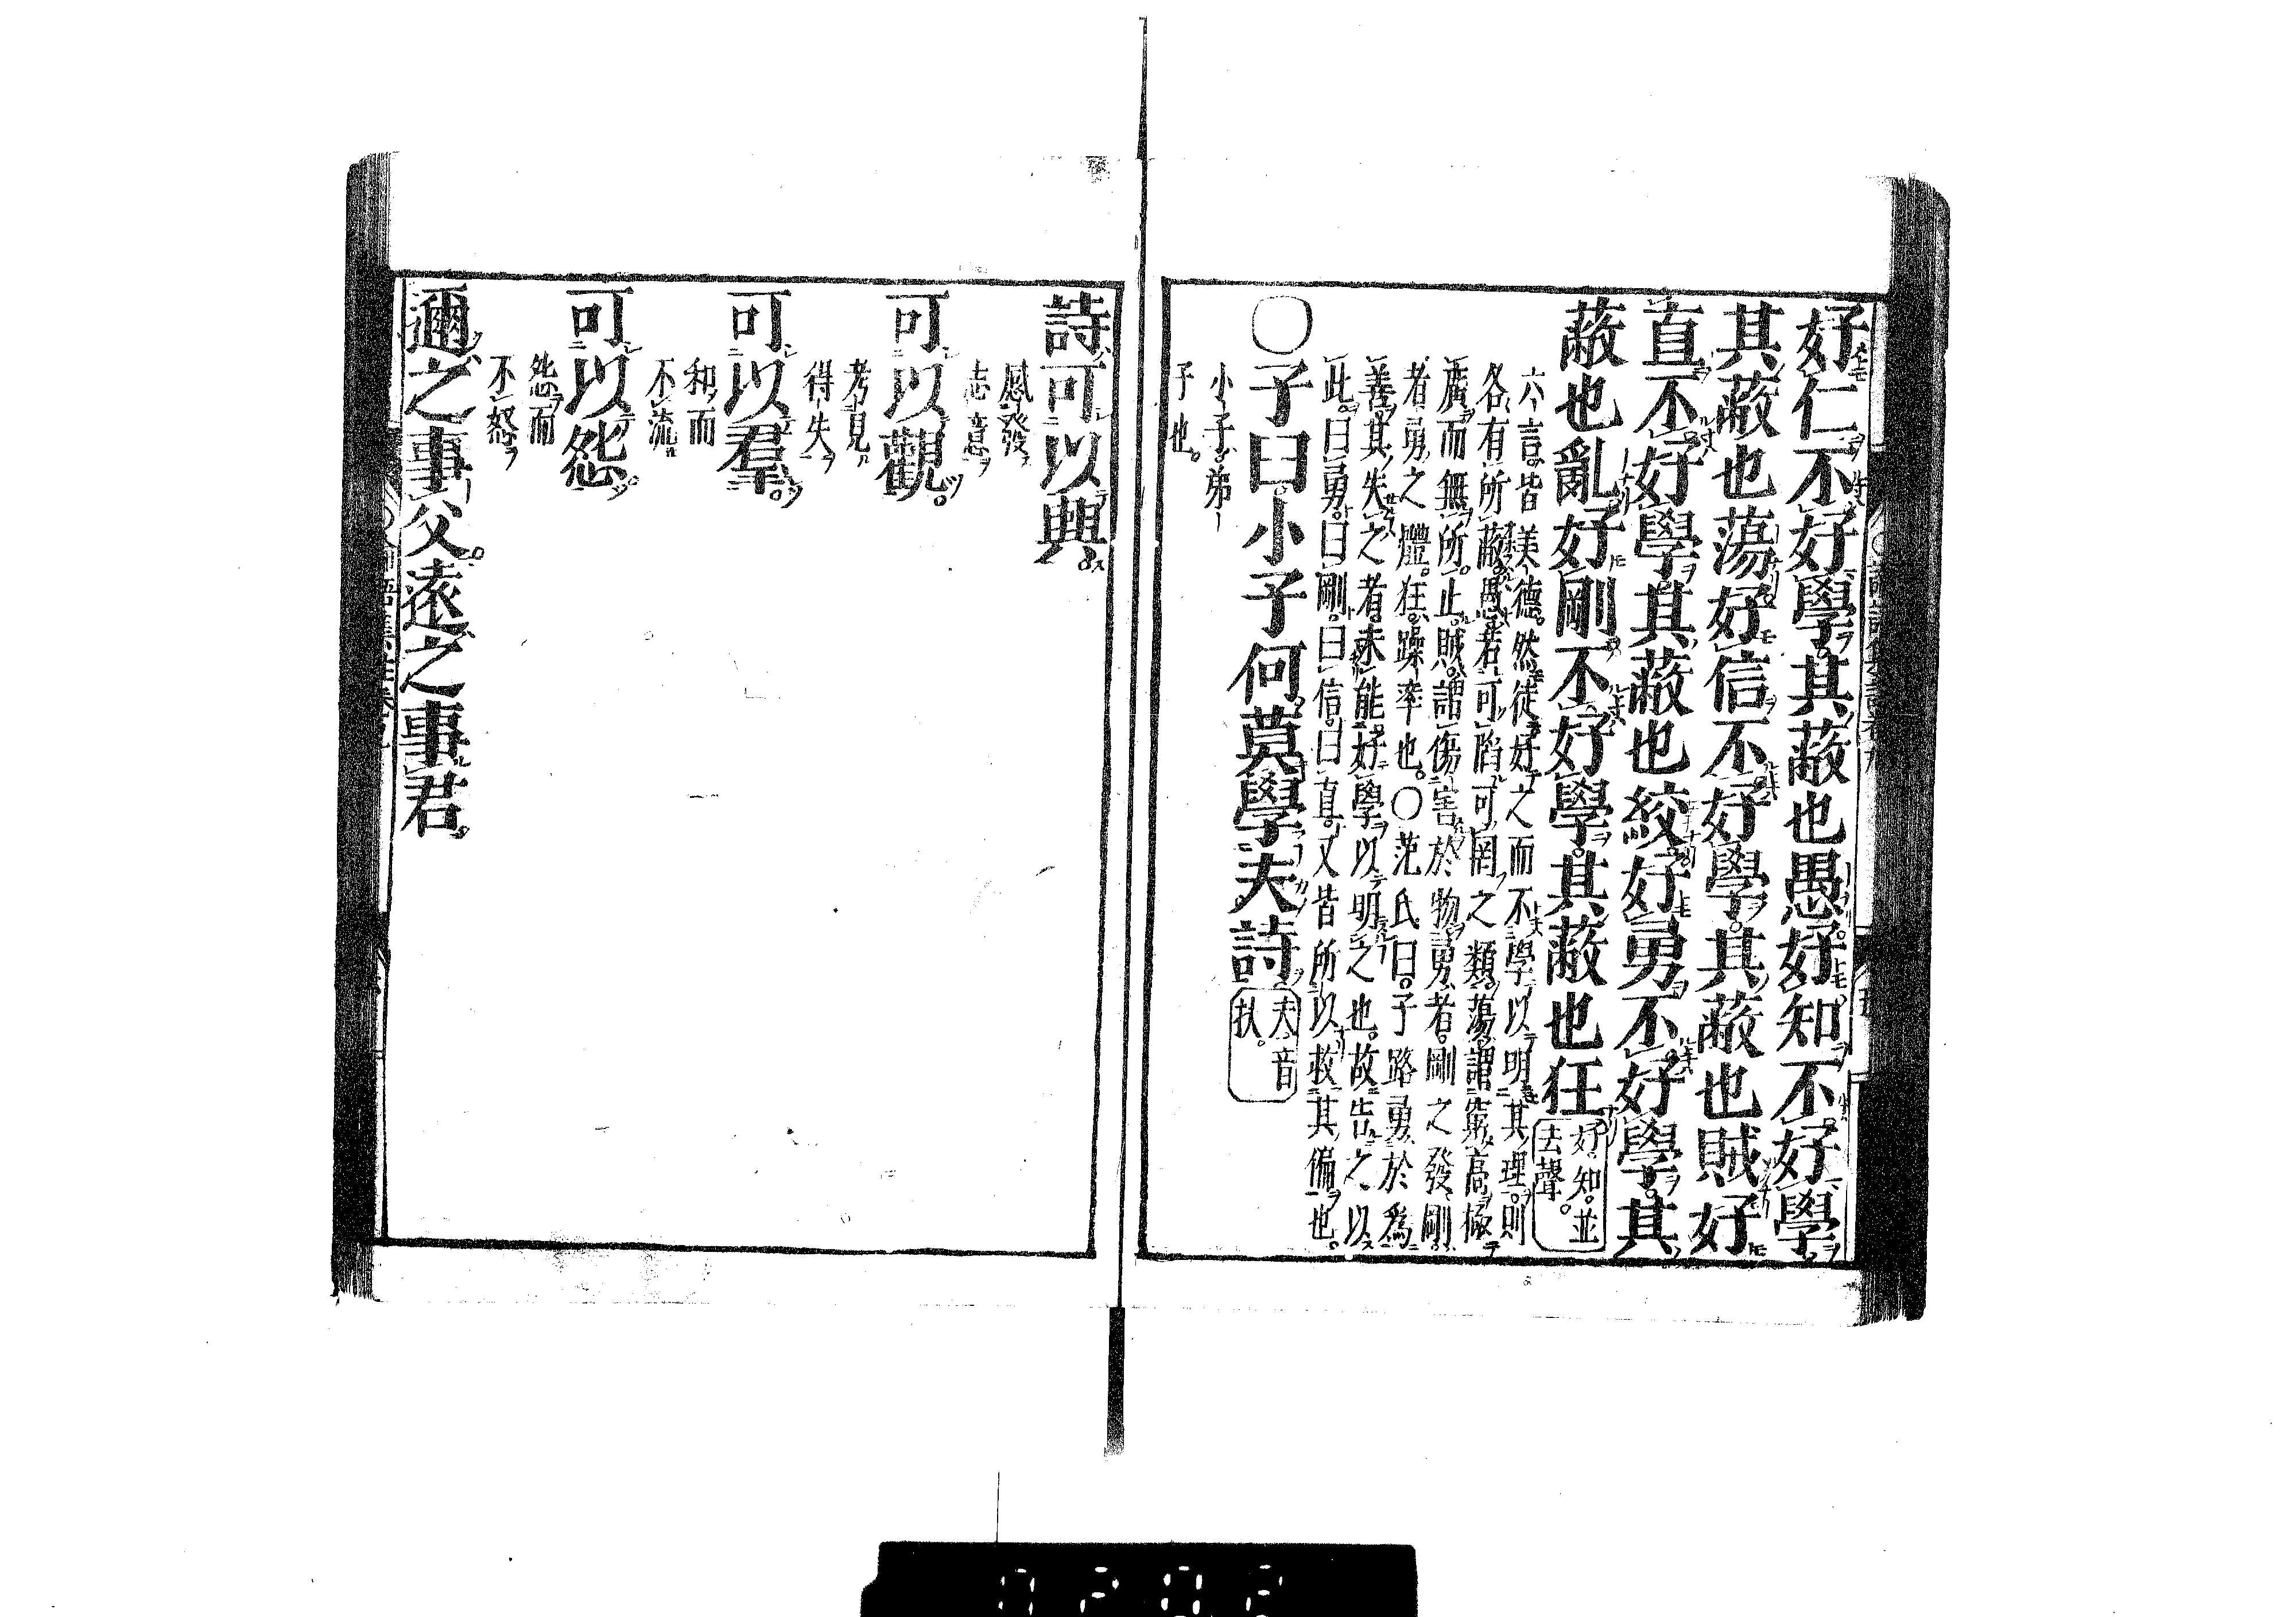 好仁不好學其蔽也愚好知不好學
其蔽也蕩好信不好學其蔽也賊好
直不好學其蔽也絞好勇不好學其
蔽也亂好剛不好學其蔽也狂
好知並
去聲
六言皆美德然徒好之而不學以明其理則
各有所蔽愚若可陷可罔之類蕩謂窮高極
廣而無所止賊謂傷害於物勇者剛之發剛
者勇之體狂躁率也〇范氏曰子路勇於爲
善其失之者未能好學以明之也故告之以
此曰勇曰剛曰信曰直又皆所以救其偏也
〇子曰小子何莫學夫詩
夫音
扶
小子弟
子也
詩可以興
感發
志意
可以觀
考見
得失
可以羣
和而
不流
可以怨
怨而
不怒
邇之事父遠之事君